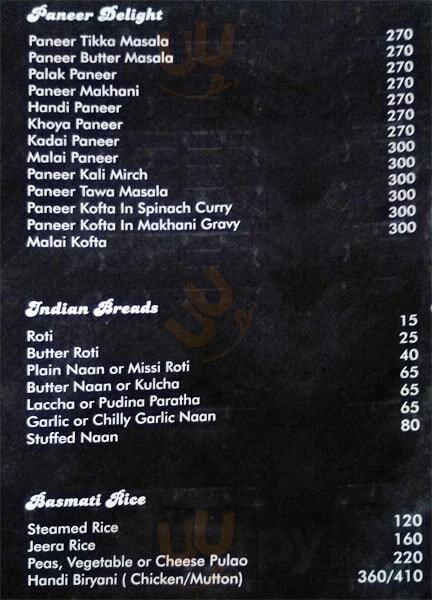 Paneer Delight
Paneer Tikka Masala 270
Paneer Butter Masala 270
Palak Paneer 270
Paneer Makhani 270
Handi Paneer 270
Khoya Paneer 270
Kadai Paneer 270
Malai Paneer 300
Paneer Kali Mirch 300
Paneer Tawa Masala 300
Paneer Kofta In Spinach Curry 300
Paneer Kofta In Makhani Gravy 300
Malai Kofta 300
Indian Breads
Roti 15
Butter Roti 25
Plain Naan or Missi Roti 40
Butter Naan or Kulcha 65
Laccha or Pudina Paratha 65
Garlic or Chilly Garlic Naan 65
Stuffed Naan 80
Basmati Rice
Steamed Rice 120
Jeera Rice 160
Peas, Vegetable or Cheese Pulao 220
Handi Biryani ( Chicken/Mutton) 360/410